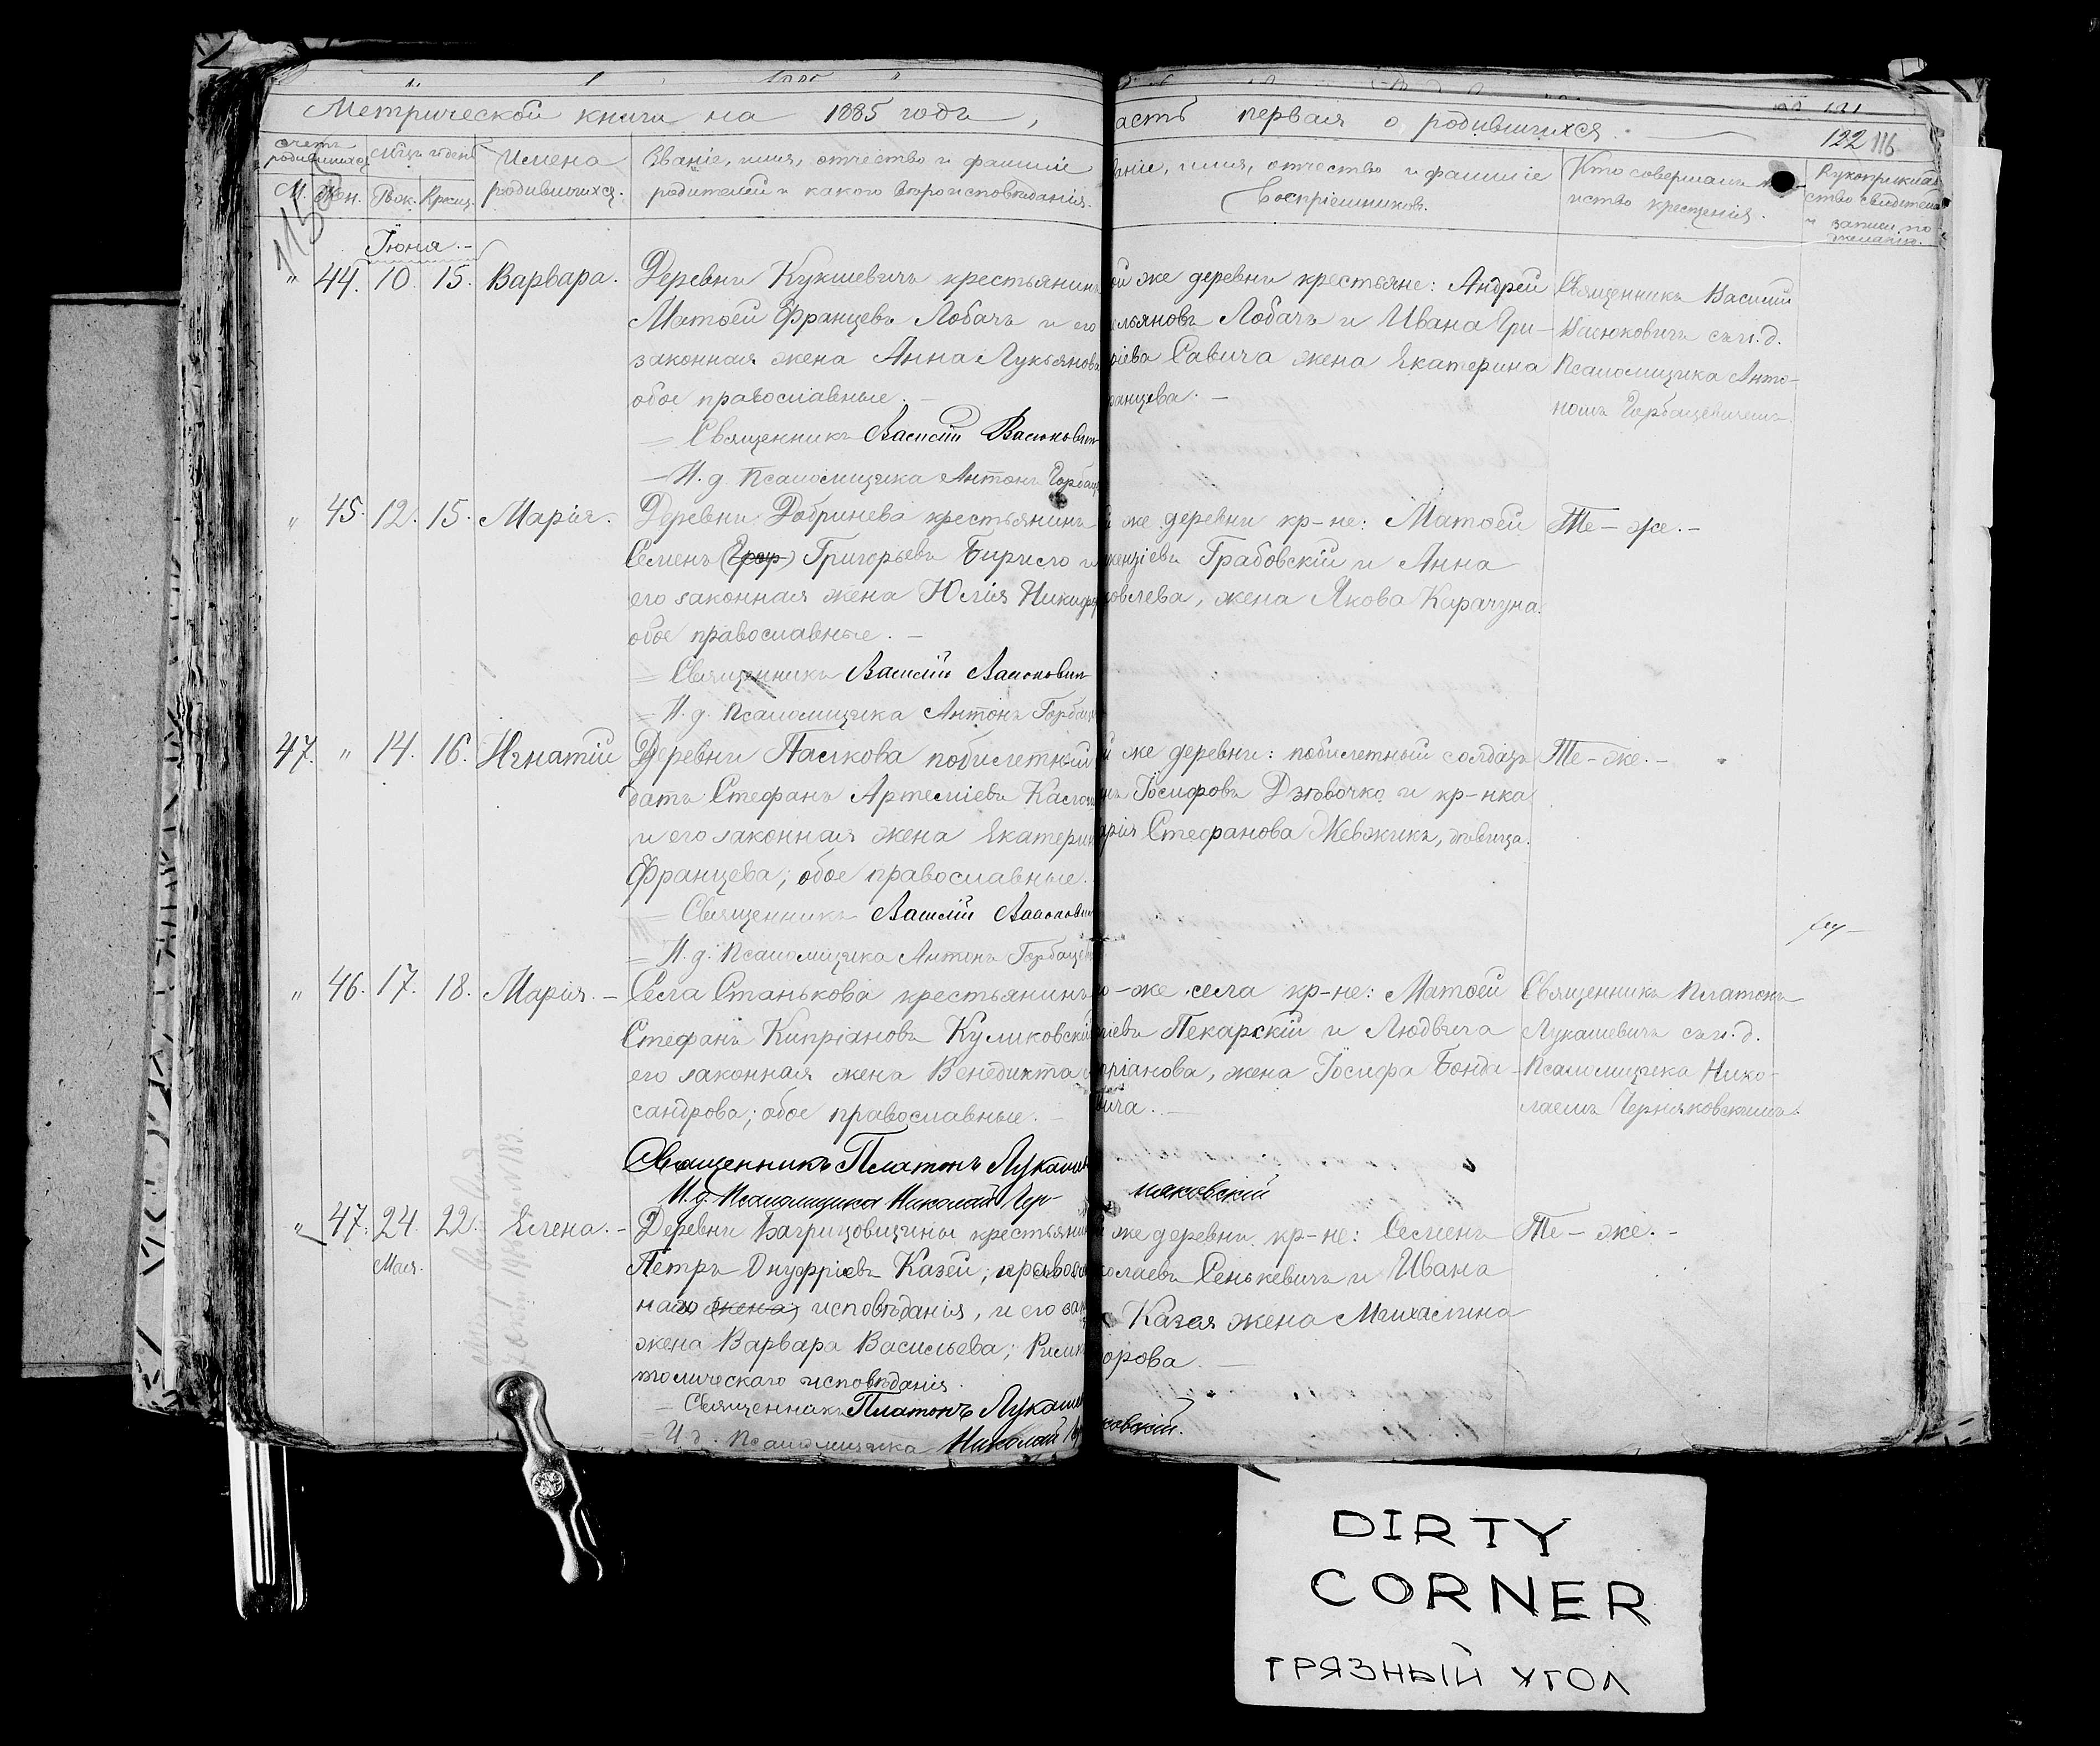 Метрической книги на 1885 годъ,
асть первая о родившихся.
122 116
115 об
Счетъ родившихся
М. Жен.
Мѣц. и день
Рож. Крещ.
Имена
родившихся.
Званіе, имя, отчество и фамилія
родителей и какого вѣроисповѣданія.
ніе, имя, отчество и фамиліе
Воспріемниковъ.
Кто совершалъ
нство крещенія.
Рукоприклад
ство свидѣтел
записи по
желанію.
Іюня.
" 44. 10. 15. Варвара.
Деревни Кукшевичъ крестьянинъ
Матѳей Францевъ Лобачъ и его
законная жена Анна Лукьянова
обое православные.
Священникъ Василій Васюкович
И. д. Псаломщика Антонъ Горбац
ой же деревни крестьяне: Андрей
ельяновъ Лобачъ и Ивана Гри-
ріева Савича жена Екатерина
ранцева.
Священникъ Василій
Васюковичъ съ и. д.
Псаломщика Анто-
номъ Горбацевичемъ.
" 45. 12. 15. Марія.
Деревни Добринева крестьянинъ
Семенъ (Григор) Григорьевъ Бирило и
его законная жена Юлія Никифо
обое православные.
Священникъ Василій Васюкович
И. д. Псаломщика Антонъ Горбац
й же деревни кр-не: Матѳей
кентіевъ Грабовскій и Анна
ковлева, жена Якова Карачуна.
Тѣ-же.-
47. " 14. 16. Игнатій
Деревни Паликова побилетный
датъ Стефанъ Артеміевъ
и его законная жена Екатерин
Францева; обое православные.
Священникъ Василій Васюкович
И. д. Псаломщика Антонъ Горбацев
й же деревни: побилетный солдатъ
нъ Іосифовъ Дзѣвочко и кр-нка
арія Стефанова Жевжикъ, дѣвица.
Тѣ-же.-
" 46. 17. 18. Марія.-
Села Станькова крестьянинъ
Стефанъ Кипріановъ Куликовскій
его законная жена Венедикта
сандрова; обое православные.
Священникъ Платонъ Лукашев
И. д. Псаломщика Николай Чер-
няковскій
о-же села кр-не: Матѳей
ріевъ Пекарскій и Людвига
пріанова, жена Іосифа Бонда-
вича.
Священникъ Платонъ
Лукашевичъ съ и. д.
Псаломщика Нико-
лаемъ Черняковскимъ.
" 47. 24. 22. Елена.-
Мая.
Деревни Багрицовщины крестьянин
Петръ Онуфріевъ Казей, правосл
наго (жена) исповѣданія, и его зак
жена Варвара Васильева; Римк
толическаго исповѣданія.
Священникъ Платонъ Лукашев
И. д. Псаломщика Николай Чер
ковскій.
й же деревни кр-не: Семенъ
колаевъ Сенькевичъ и Ивана
Казея жена Михалина
орова.
Тѣ-же.-
DIRTY
CORNER
ГРЯЗНЫЙ УГОЛ